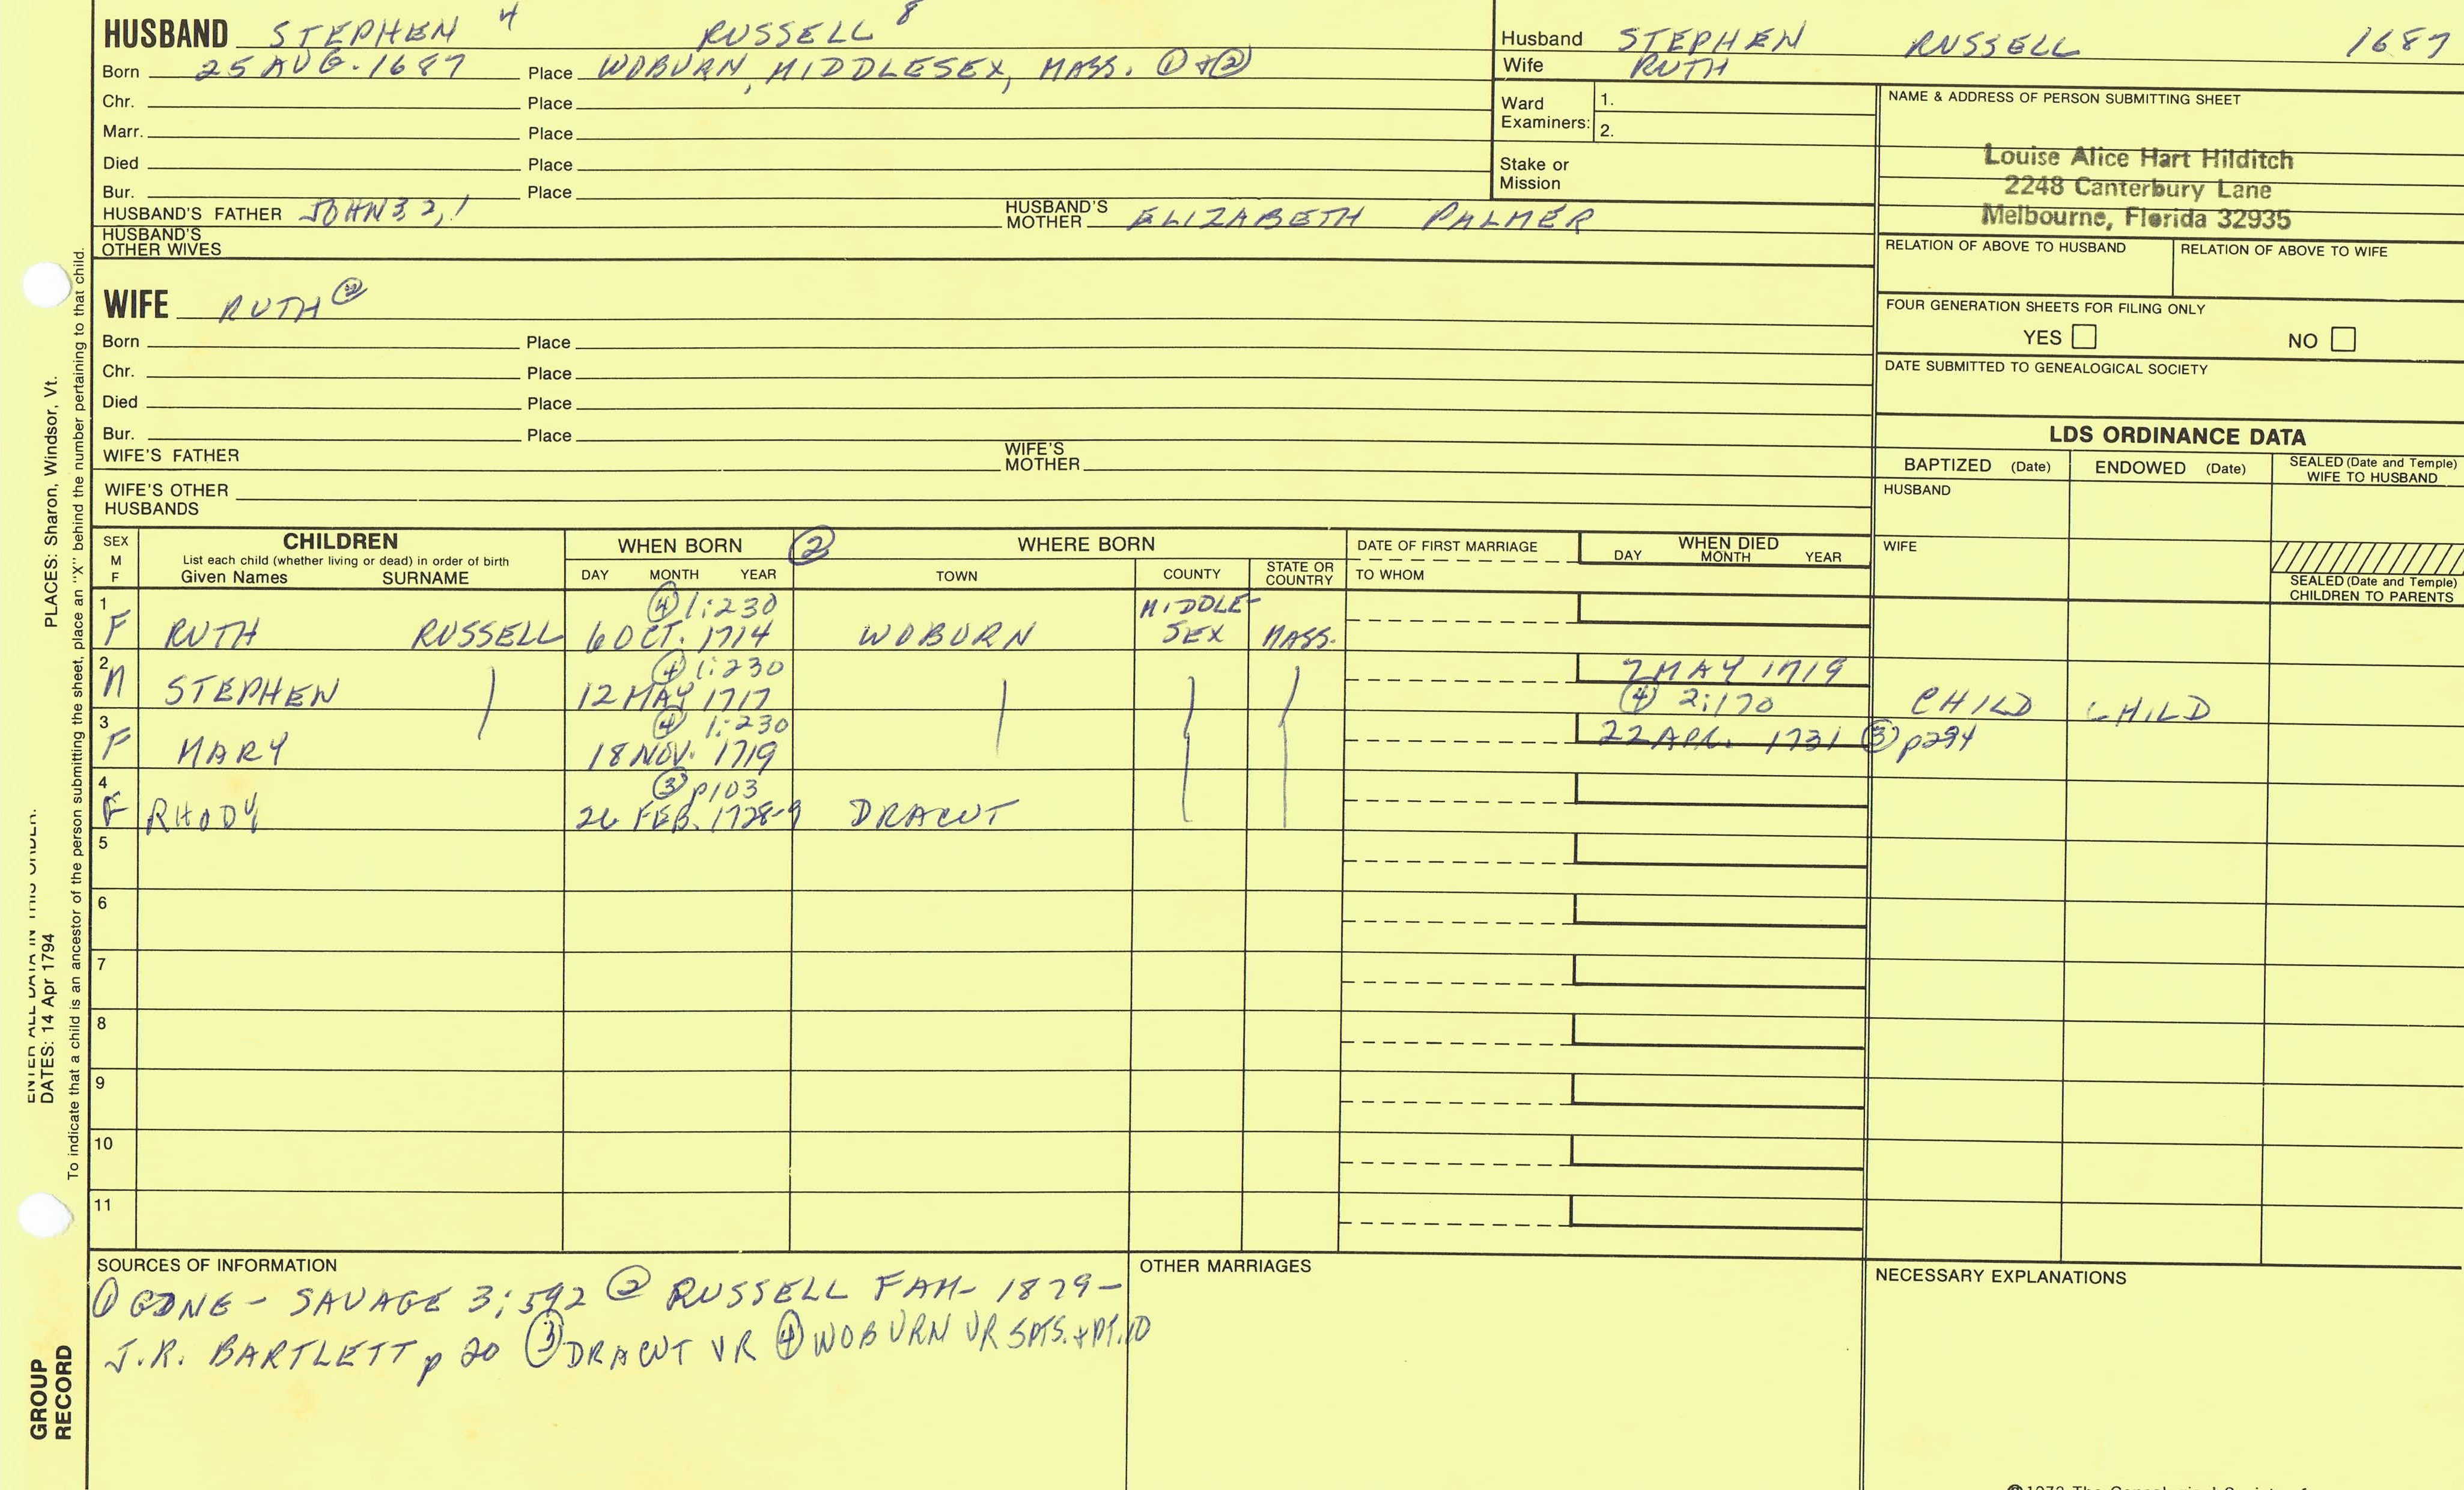 HUSBAND STEPHEN 4 RUSSELL 8
Born 25 AUG. 1687 Place WOBURN, MIDDLESEX, MASS. ① + ②
Chr. Place
Marr. Place
Died Place
Bur. Place
HUSBAND'S FATHER JOHN 3, 2, 1 HUSBAND'S MOTHER ELIZABETH PALMER
HUSBAND'S OTHER WIVES
Husband STEPHEN RUSSELL 1687
Wife RUTH
Ward Examiners: 1.
2.
Stake or Mission
NAME & ADDRESS OF PERSON SUBMITTING SHEET
Louise Alice Hart Hilditch
2248 Canterbury Lane
Melbourne, Florida 32935
RELATION OF ABOVE TO HUSBAND RELATION OF ABOVE TO WIFE
FOUR GENERATION SHEETS FOR FILING ONLY
YES NO
DATE SUBMITTED TO GENEALOGICAL SOCIETY
WIFE RUTH ②
Born Place
Chr. Place
Died Place
Bur. Place
WIFE'S FATHER WIFE'S MOTHER
WIFE'S OTHER HUSBANDS
LDS ORDINANCE DATA
BAPTIZED (Date) ENDOWED (Date) SEALED (Date and Temple) WIFE TO HUSBAND
HUSBAND
WIFE
SEALED (Date and Temple) CHILDREN TO PARENTS
SEX M F CHILDREN WHEN BORN ② WHERE BORN DATE OF FIRST MARRIAGE WHEN DIED
List each child (whether living or dead) in order of birth
Given Names SURNAME DAY MONTH YEAR TOWN COUNTY STATE OR COUNTRY TO WHOM DAY MONTH YEAR
1 ④ 1:230 MIDDLE-
F RUTH RUSSELL 6 OCT. 1714 WOBURN SEX MASS.
2 ④ 1:230 7 MAY 1719
M STEPHEN 12 MAY 1717 ④ 2:170 CHILD CHILD
3 ④ 1:230
F MARY 18 NOV. 1719 22 APR. 1731 ③ p294
4 ③ p103
F RHODY 26 FEB. 1728-9 DRACUT
5
6
7
8
9
10
11
SOURCES OF INFORMATION
① GDNE - SAVAGE 3:592 ② RUSSELL FAM - 1879 -
J.R. BARTLETT p 20 ③ DRACUT VR ④ WOBURN VR 5PTS. + PT. 10
OTHER MARRIAGES
NECESSARY EXPLANATIONS
ENTER ALL DATA IN THIS ORDER:
DATES: 14 Apr 1794 PLACES: Sharon, Windsor, Vt.
To indicate that a child is an ancestor of the person submitting the sheet, place an "X" behind the number pertaining to that child.
GROUP
RECORD